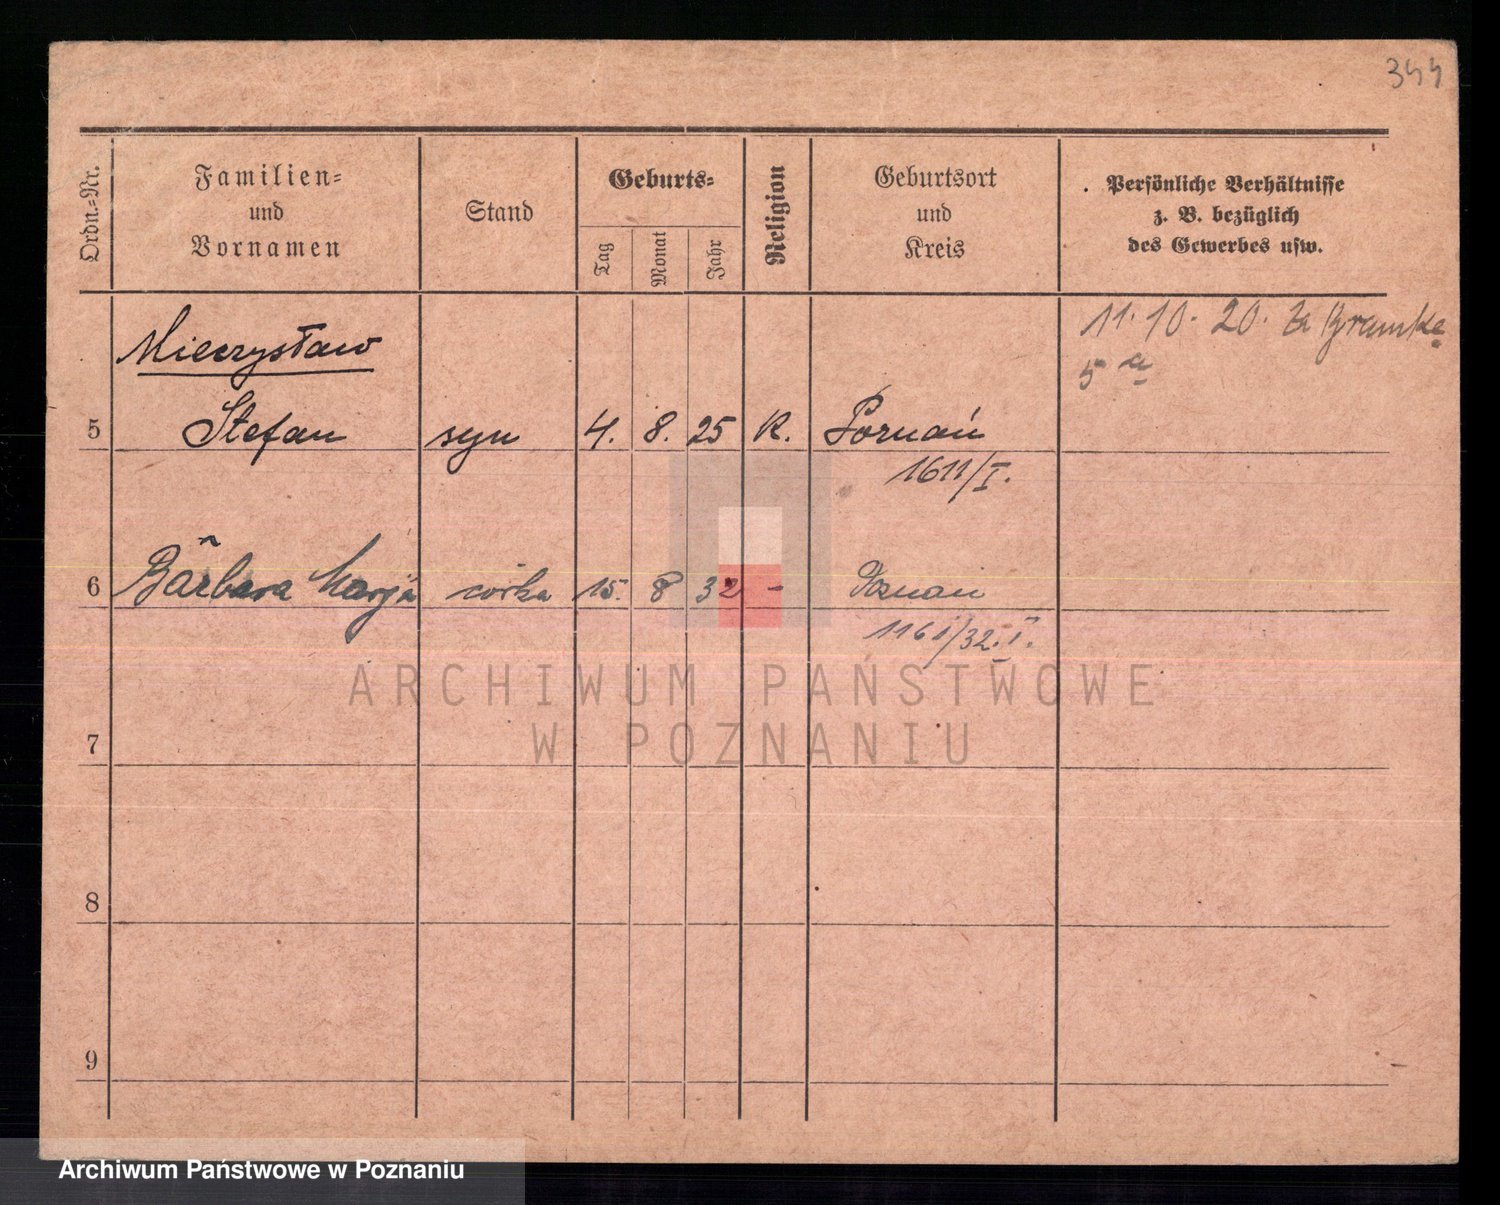 344
Ordn.-Nr.
Familien-
und
Vornamen
Stand
Geburts-
Tag
Monat
Jahr
Religion
Geburtsort
und
Kreis
Persönliche Verhältnisse
z. B. bezüglich
des Gewerbes usw.
11. 10. 20.
Mieczysław
5 Stefan syn 4. 8. 25 K. Poznań
1611/I.
6 Barbara Marja córka 15. 8 32 - Poznań
1161/32. I.
7
8
9
ARCHIWUM PAŃSTWOWE
W POZNANIU
Archiwum Państwowe w Poznaniu